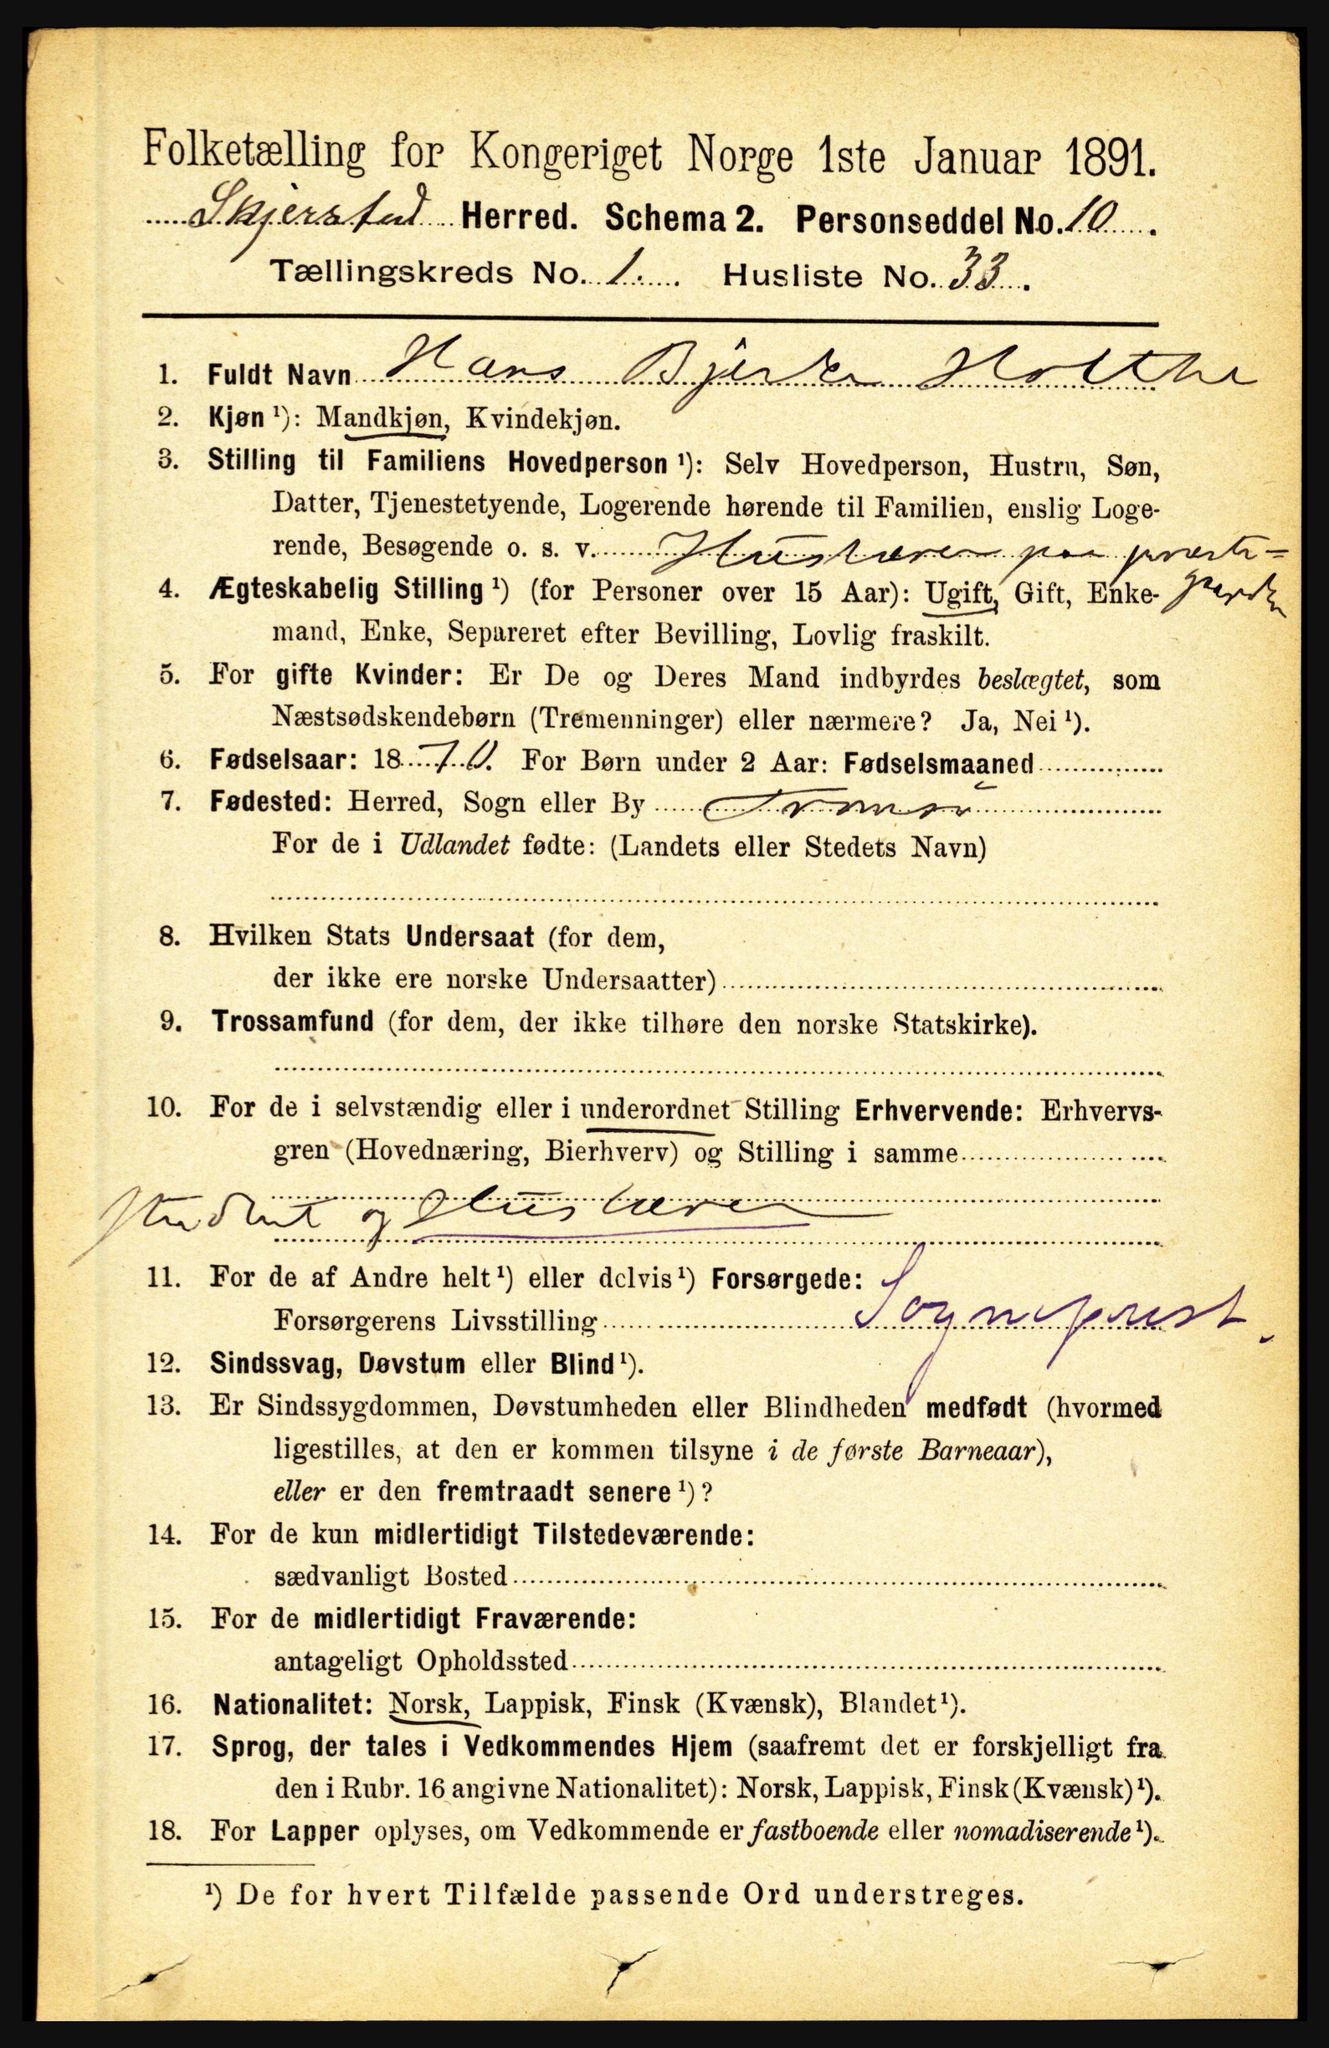 Folketælling for Kongeriget Norge 1ste Januar 1891.
Skjerstad Herred. Schema 2. Personseddel No. 10.
Tællingskreds No. 1. Husliste No. 33.
1. Fuldt Navn Hans Bjerke Holthe
2. Kjøn ¹): Mandkjøn, Kvindekjøn.
3. Stilling til Familiens Hovedperson ¹): Selv Hovedperson, Hustru, Søn,
Datter, Tjenestetyende, Logerende hørende til Familien, enslig Loge-
rende, Besøgende o. s. v. Huslærer paa præste-
gaarden
4. Ægteskabelig Stilling ¹) (for Personer over 15 Aar): Ugift, Gift, Enke-
mand, Enke, Separeret efter Bevilling, Lovlig fraskilt.
5. For gifte Kvinder: Er De og Deres Mand indbyrdes beslægtet, som
Næstsødskendebørn (Tremenninger) eller nærmere? Ja, Nei ¹).
6. Fødselsaar: 1870. For Børn under 2 Aar: Fødselsmaaned
7. Fødested: Herred, Sogn eller By Tromsö
For de i Udlandet fødte: (Landets eller Stedets Navn)
8. Hvilken Stats Undersaat (for dem,
der ikke ere norske Undersaatter)
9. Trossamfund (for dem, der ikke tilhøre den norske Statskirke).
10. For de i selvstændig eller i underordnet Stilling Erhvervende: Erhvervs-
gren (Hovednæring, Bierhverv) og Stilling i samme
Student og Huslærer
11. For de af Andre helt ¹) eller delvis ¹) Forsørgede:
Forsørgerens Livsstilling Sogneprest.
12. Sindssvag, Døvstum eller Blind ¹).
13. Er Sindssygdommen, Døvstumheden eller Blindheden medfødt (hvormed
ligestilles, at den er kommen tilsyne i de første Barneaar),
eller er den fremtraadt senere ¹)?
14. For de kun midlertidigt Tilstedeværende:
sædvanligt Bosted
15. For de midlertidigt Fraværende:
antageligt Opholdssted
16. Nationalitet: Norsk, Lappisk, Finsk (Kvænsk), Blandet ¹).
17. Sprog, der tales i Vedkommendes Hjem (saafremt det er forskjelligt fra
den i Rubr. 16 angivne Nationalitet): Norsk, Lappisk, Finsk (Kvænsk) ¹).
18. For Lapper oplyses, om Vedkommende er fastboende eller nomadiserende ¹).
¹) De for hvert Tilfælde passende Ord understreges.